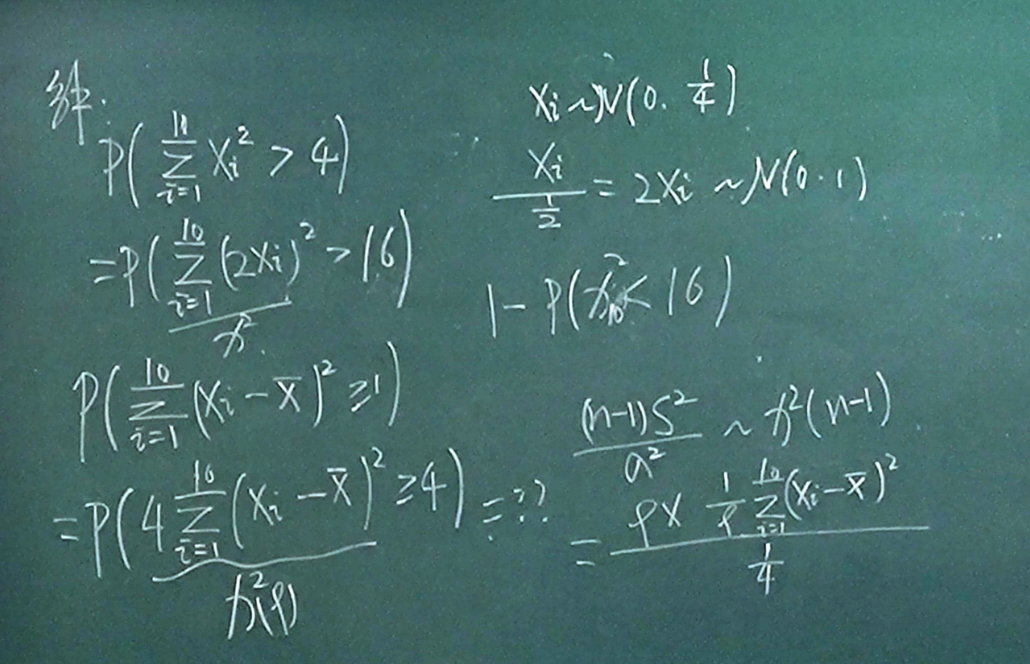 解:
P(∑_{i=1}^{10} X_i^2 > 4)
= P(∑_{i=1}^{10} (2X_i)^2 > 16)
χ^2
P(∑_{i=1}^{10} (X_i - X̄)^2 ≥ 1)
= P(4∑_{i=1}^{10} (X_i - X̄)^2 ≥ 4) = ??
χ^2(9)
X_i ~ N(0. 1/4)
X_i / (1/2) = 2X_i ~ N(0.1)
1 - P(χ^2_{10} < 16)
(n-1)S^2 / σ^2 ~ χ^2(n-1)
= (9 × 1/9 ∑_{i=1}^{10} (X_i - X̄)^2) / (1/4)